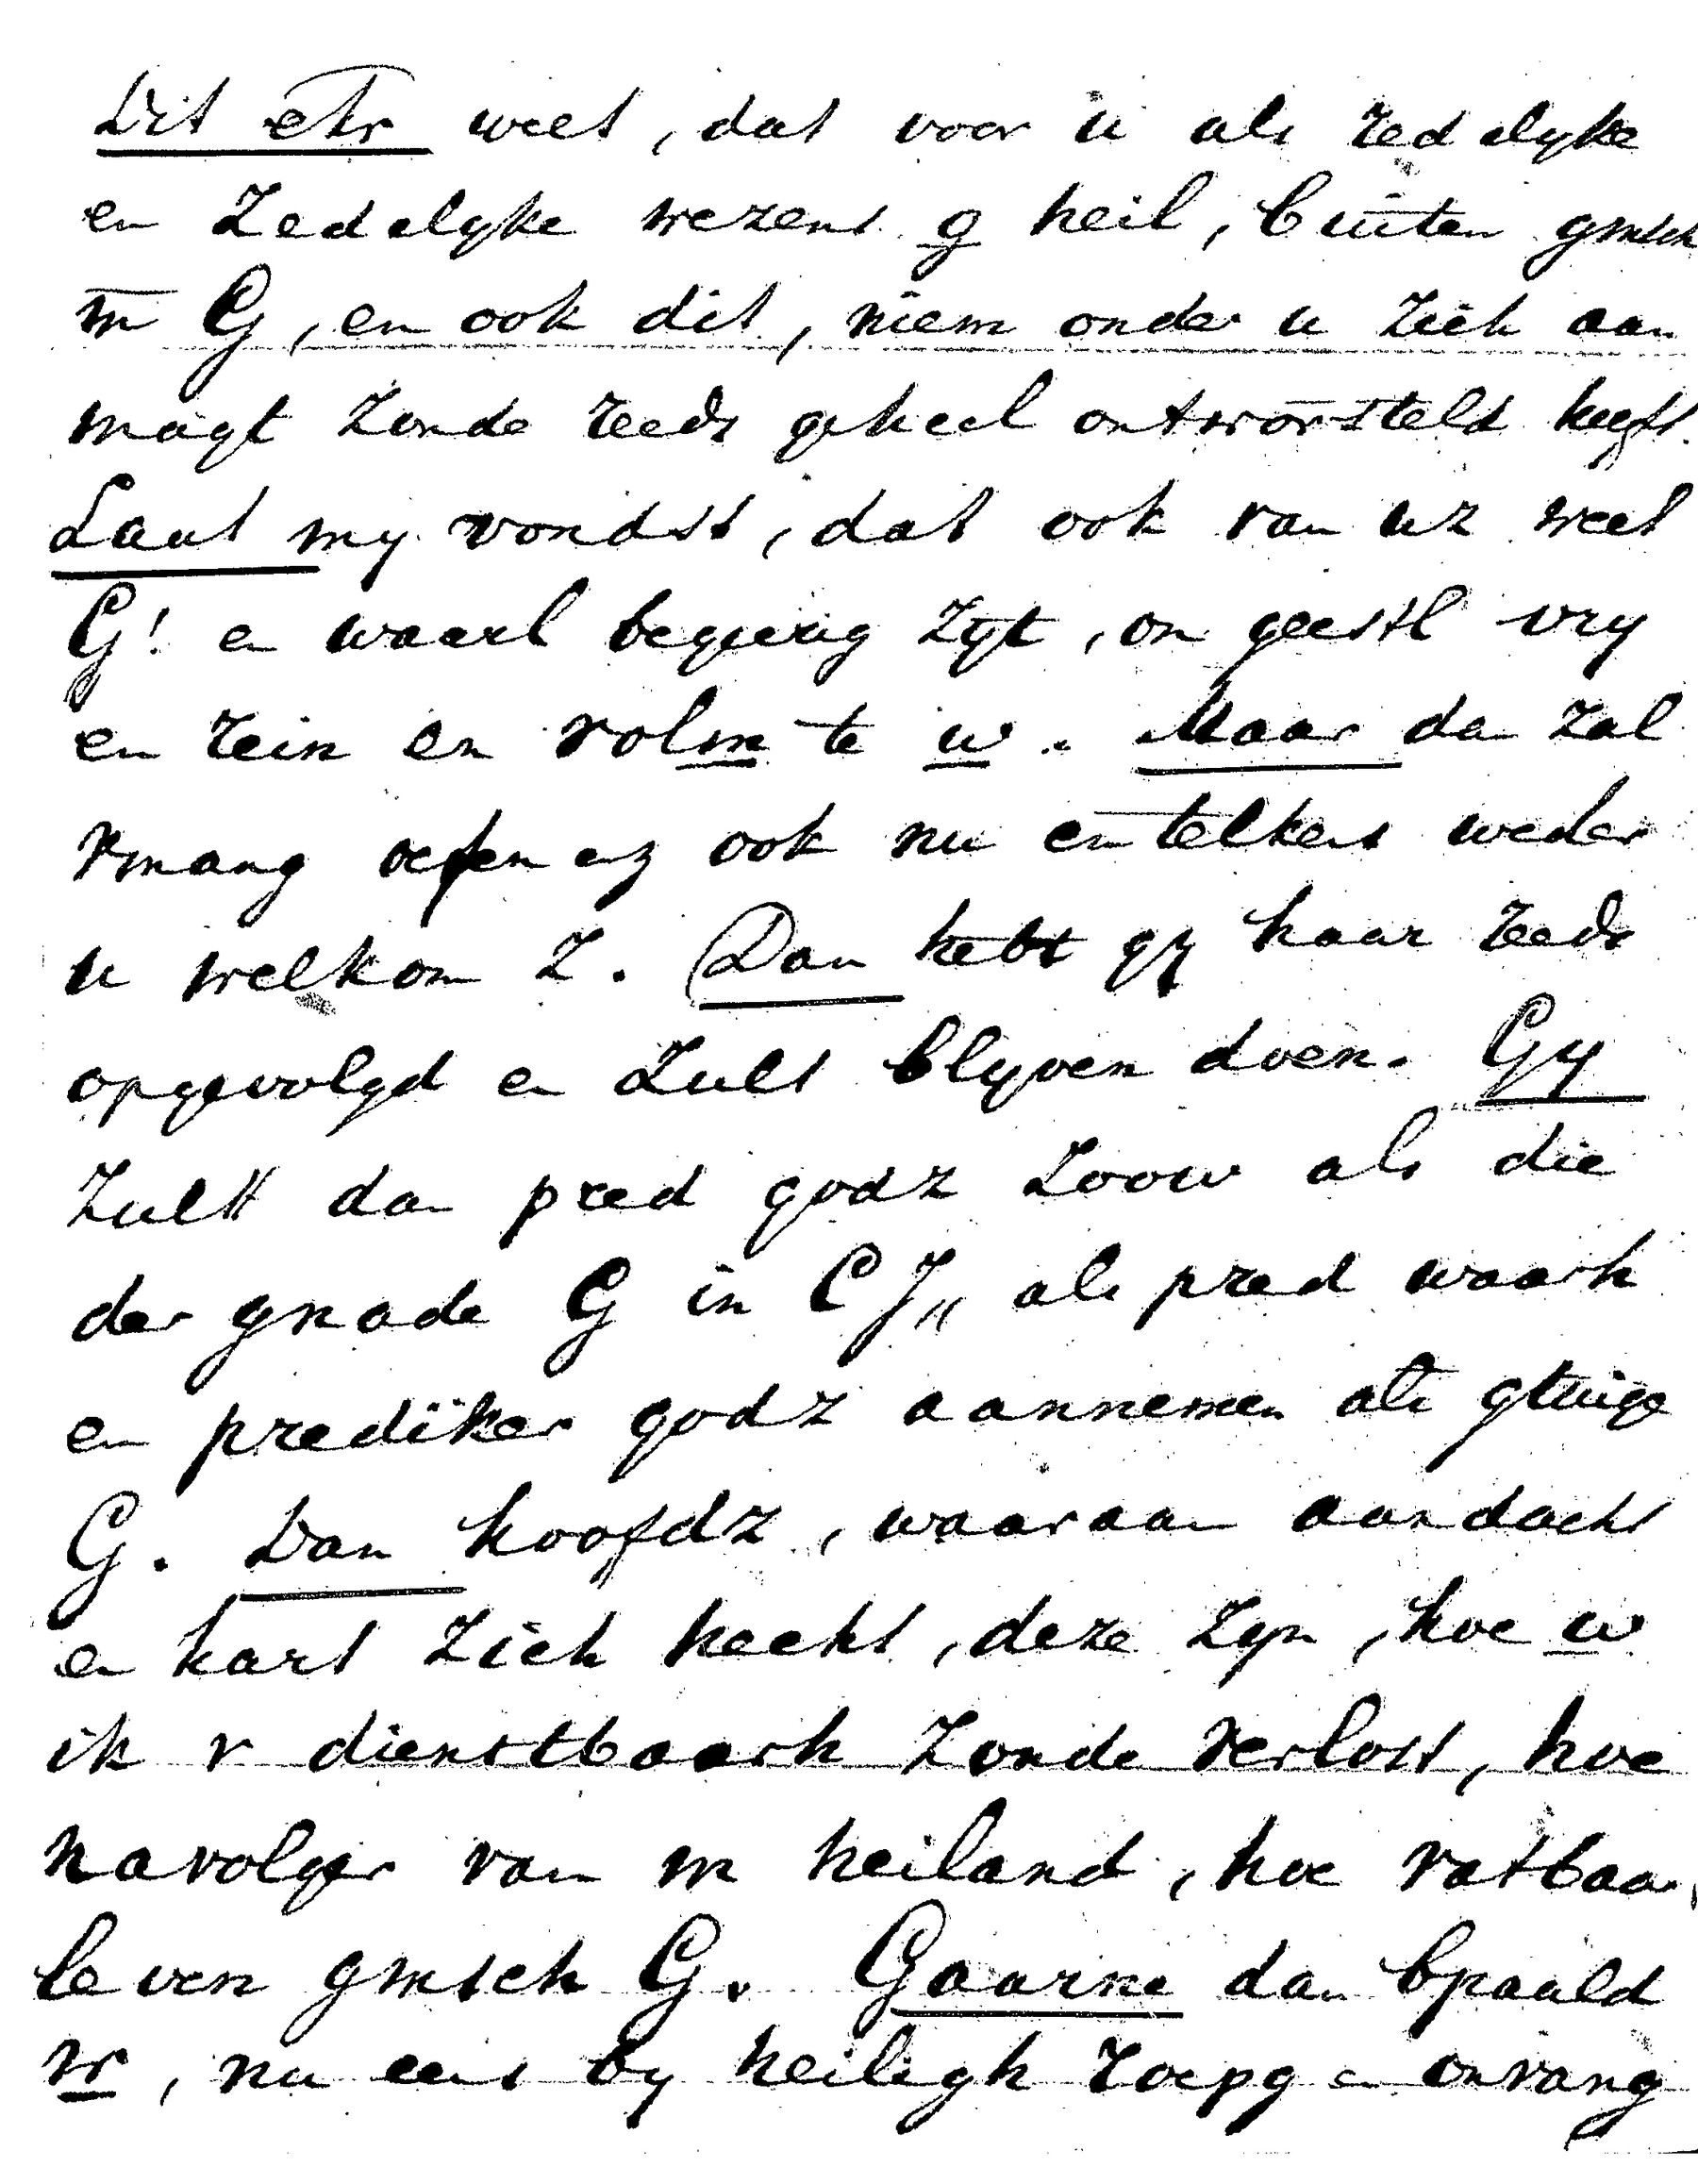 Dit etr weet, dat voor u als redelyke
en zedelyke wezens g heil, buiten gmsch
m G, en ook dit, niem onder u zich aan
magt zonde reeds geheel ontworsteld heeft.
Laat my vondst, dat ook van uz weet
G! en waarl begeerig zyt, om geestl vry
en rein en volm te w. Maar dan zal
vmang oefen enz ook nu en telkens weder
u welkom z. Dan hebt gy haar reeds
opgevolgd en zult blyven doen. Gy
zult dan pred godz zoow als die
der gnade G in C J,, als pred waarh
en prediker godz aannemen als gtuige
G. Dan hoofdz, waaraan aandacht
en hart zich hecht, deze zyn, hoe w
ik v dienstbaarh zonde verlost, hoe
navolger van m heiland, hoe vatbaar
leven gmsch G. Gaarne dan bpaald
w, nu eens by heiligh roepg en omvang